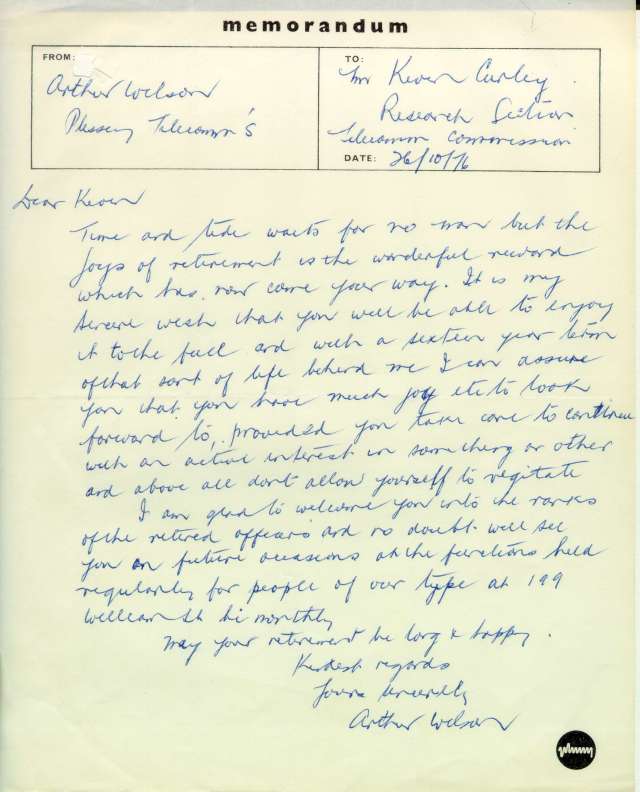 memorandum
FROM:
Arthur Wilson
Plessey Telecomm's
TO:
Mr Keven Curley.
Research Section
Telecomm Commission
DATE: 26/10/76
Dear Keven
Time and tide waits for no man but the
Joys of retirement is the wonderful reward
which has now come your way. It is my
sincere wish that you will be able to enjoy
it to the full and with a sixteen year term
of that sort of life behind me I can assure
you that you have much joy etc to look
forward to, provided you take care to continue
with an active interest in something or other
and above all don't allow yourself to vegitate
I am glad to welcome you into the ranks
of the retired officers and no doubt will see
you on future occasions at the functions held
regularly for people of our type at 199
William St bi monthly
May your retirement be long & happy.
Kindest regards
Yours sincerely
Arthur Wilson
plessey